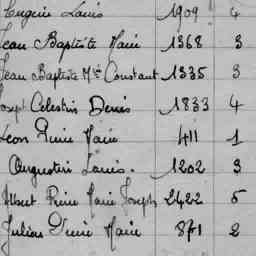 Eugène Louis 1909 4
Jean Baptiste Marie 1368 3
Jean Baptiste Mie Constant 1335 3
Joseph Célestin Denis 1833 4
Léon Marie 411 1
Augustin Louis. 1202 3
Albert Marie Joseph 2422 5
Julien Marie 871 2